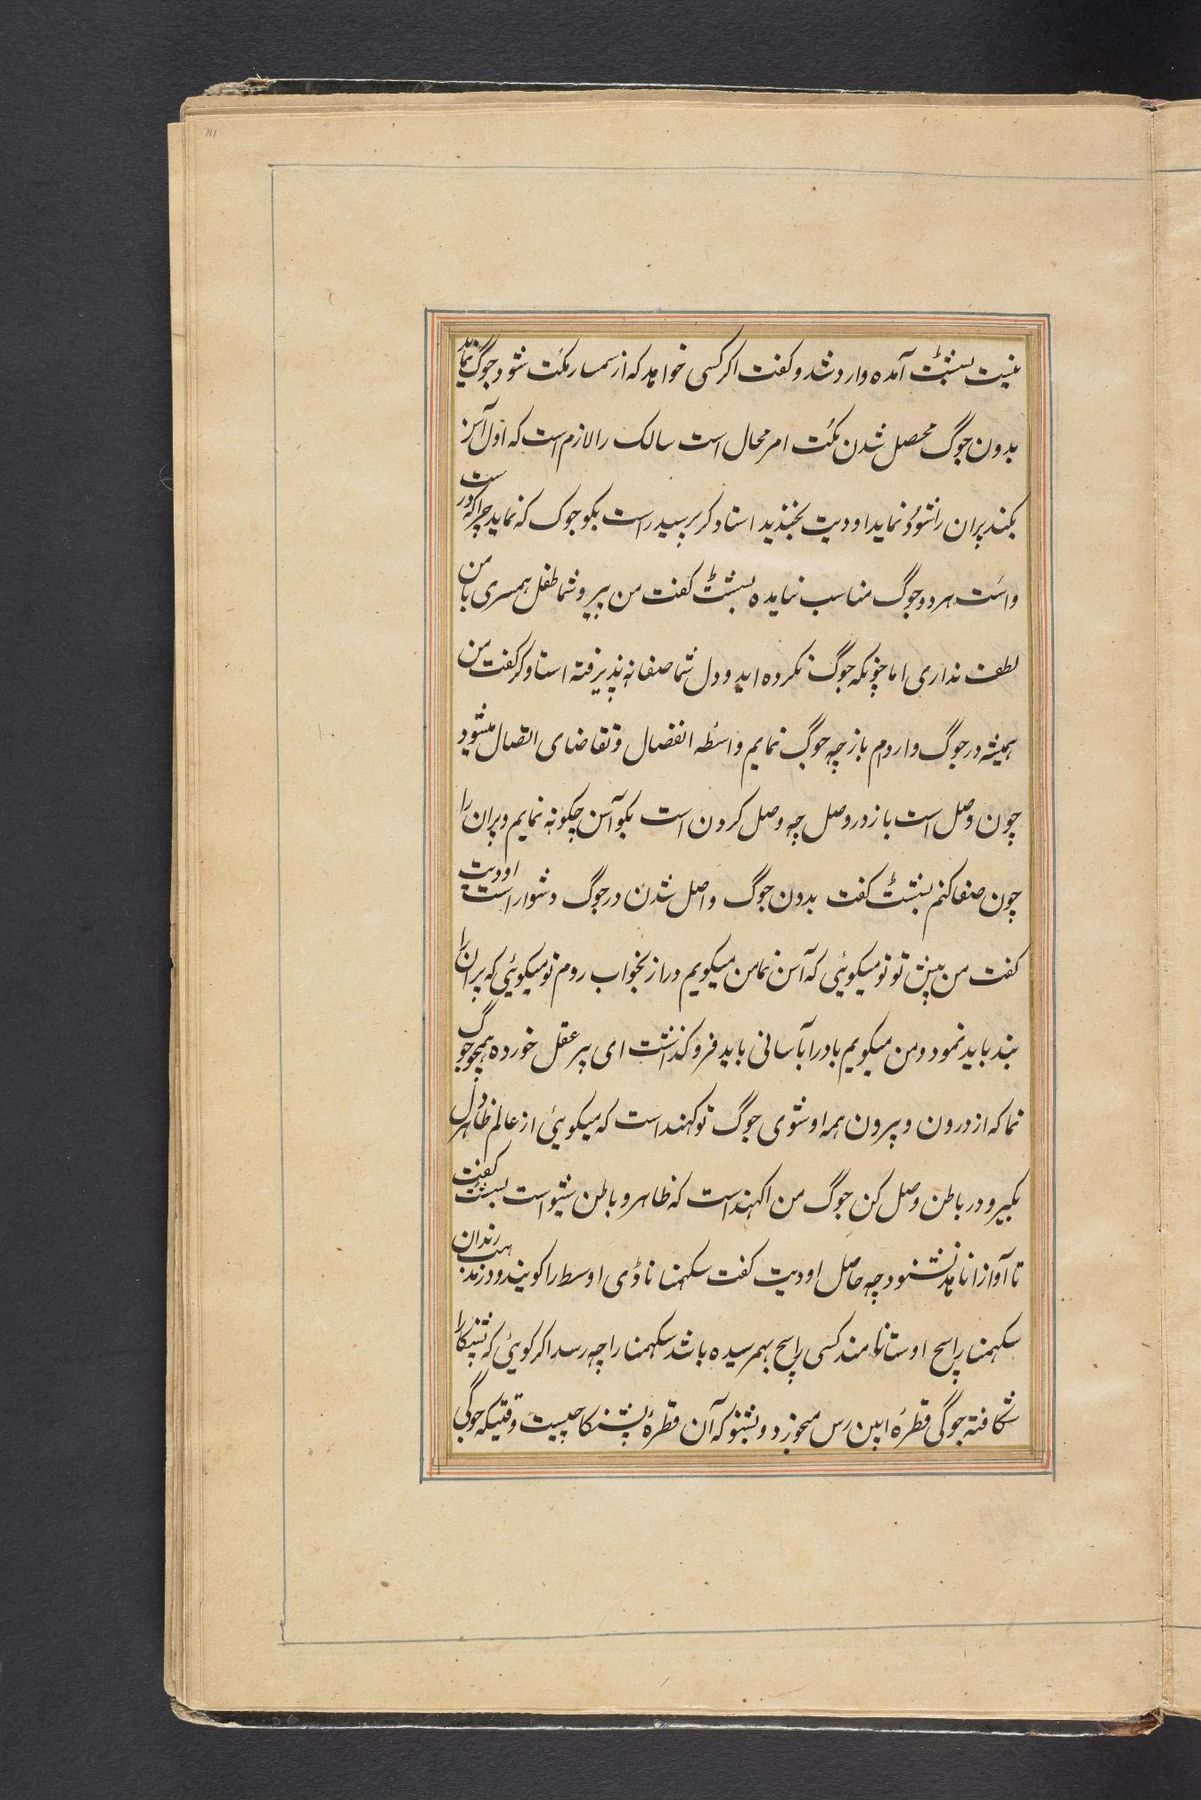 بسشت آمده وارد شد و کفت اکر کسی خواهد که از سمسار مکت شود جوگ نماید
بدون جوگ محصل شدن مکت امر محال است سالک را لازم است که اول آسن
بکند پران را نمود نماید اودیت بخندید استاد کر پرسید راست بکو جوک که نماید چرا که در
واست هر دو جوگ مناسب نیامده بسشت کفت من پیر و شما طفل همسری با من
لطف نداری اما چونکه جوگ نکرده اید و دل شما صفا نه پذیرفته استاد کر کفت من
همیشه در جوگ واردم باز چه جوگ نمایم واسطه انفصال و تقاضای اتصال میشود
چون وصل است باز در وصل چه وصل کردن است بکو آسن چکونه نمایم و پران را
چون صفا کنم بسشت کفت بدون جوگ واصل شدن در جوگ دشوار است اودیت
کفت من پیش تو تو میکوئی که آسن نما من میکویم دراز بخواب روم تو میکوئی که پران را
بند باید نمود و من میکویم باد را بآسانی باید فرو کذاشت ای پیر عقل خورده همچو جوگ
نما که از درون و بیرون همه او شوی جوگ تو کهند است که میکوئی از عالم ظاهر دل
بکیر و در باطن وصل کن جوگ من اکهند است که ظاهر و باطن شیو است بسشت کفت
تا آواز اناهد نشنود چه حاصل اودیت کفت سکهمنا ناڈی اوسط را کویند و در
سکهمنا پراسح اوستا نامند کسی پراسح بهم رسیده باشد سکهمنا را چه رسد اکر کوئی که را
شکافته جوکی قطرهٔ امین رس میخورد و بشنو که آن قطرهٔ چیست وقتیکه جوکی